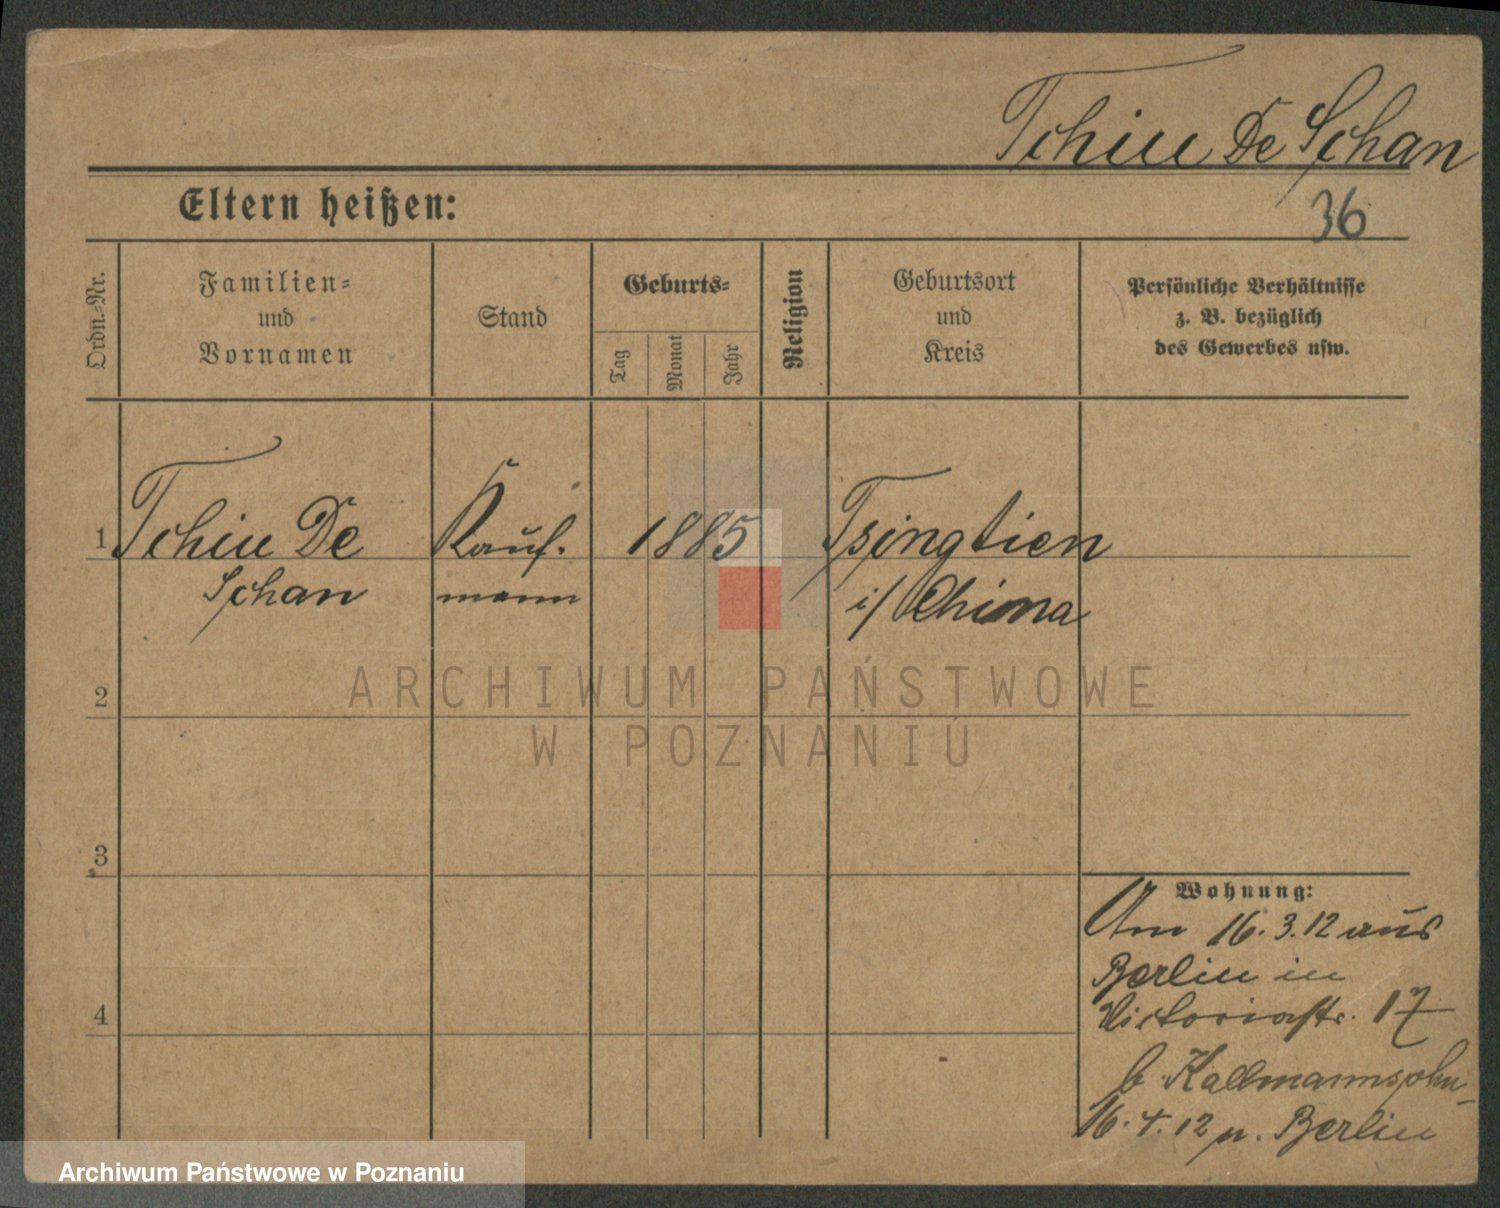 Tchiu De Schan
36
Eltern heißen:
Ordn.-Nr.
Familien=
und
Vornamen
Stand
Geburts=
Tag
Monat
Jahr
Religion
Geburtsort
und
Kreis
Persönliche Verhältnisse
z. B. bezüglich
des Gewerbes usw.
1
Tchiu De
Schan
Kauf-
mann
1885
Tsingtien
i/ China
2
3
4
ARCHIWUM PAŃSTWOWE
W POZNANIU
Wohnung:
Am 16.3.12 aus
Berlin in
Victoriastr. 17
b. Kallmannsohn
16.4.12 n. Berlin
Archiwum Państwowe w Poznaniu